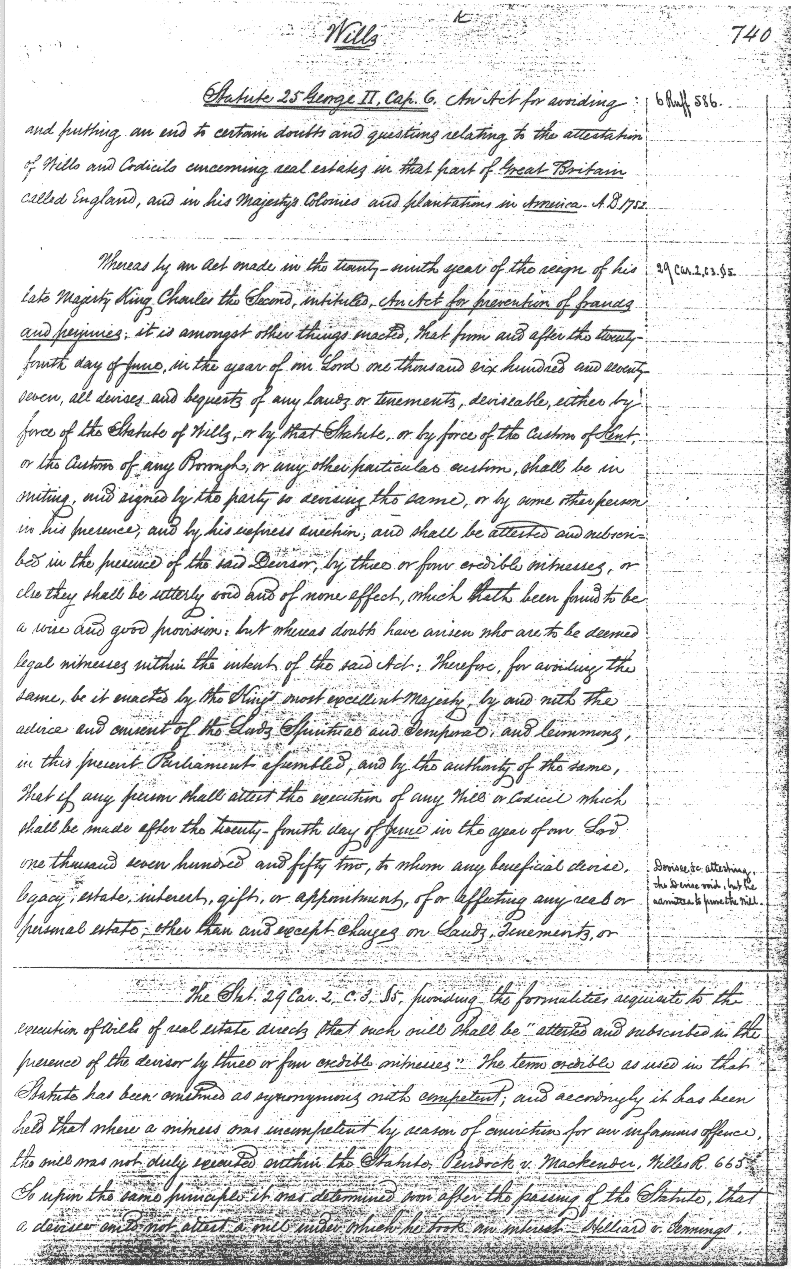 K
Wills
740
Statute 25 George II, Cap. 6. An Act for avoiding
6 Ruff 586.
and putting an end to certain doubts and questions relating to the attestation
of Wills and Codicils concerning real estates in that part of Great Britain
called England, and in his Majesty's Colonies and plantations in America - A.D. 1752
Whereas by an Act made in the twenty-ninth year of the reign of his
29 Car. 2, c. 3. §5.
late Majesty King Charles the Second, intituled, An Act for prevention of frauds
and perjuries; it is amongst other things enacted, that from and after the twenty-
fourth day of June, in the year of our Lord one thousand six hundred and seventy
seven, all devises and bequests of any lands or tenements, deviseable, either by
force of the Statute of Wills, or by that Statute, or by force of the custom of Kent,
or the custom of any Borough, or any other particular custom, shall be in
writing, and signed by the party so devising the same, or by some other person
in his presence, and by his express direction, and shall be attested and subscri-
bed in the presence of the said Devisor, by three or four credible witnesses, or
else they shall be utterly void and of none effect, which hath been found to be
a wise and good provision: but whereas doubts have arisen who are to be deemed
legal witnesses within the intent of the said Act: Therefore, for avoiding the
same, be it enacted by the King's most excellent Majesty, by and with the
advice and consent of the Lords Spiritual and Temporal, and Commons,
in this present Parliament assembled, and by the authority of the same,
That if any person shall attest the execution of any Will or Codicil which
shall be made after the twenty-fourth day of June in the year of our Lord
one thousand seven hundred and fifty two, to whom any beneficial devise,
Devisee &c. attesting,
legacy, estate, interest, gift, or appointment, of or affecting any real or
the Devise void, but he
admitted to prove the will.
personal estate, other than and except charges on Lands, Tenements, or
The Stat. 29 Car. 2, c. 3, §5, providing the formalities requisite to the
execution of wills of real estate directs that such will shall be "attested and subscribed in the
presence of the devisor by three or four credible witnesses." The term credible as used in that
Statute has been construed as synonymous with competent; and accordingly it has been
held that where a witness was incompetent by reason of conviction for an infamous offence,
the will was not duly executed within the Statute, Pendock v. Mackender, Willes R. 665
So upon the same principle it was determined soon after the passing of the Statute, that
a devisee could not attest a will under which he took an interest - Hilliard v. Jennings,